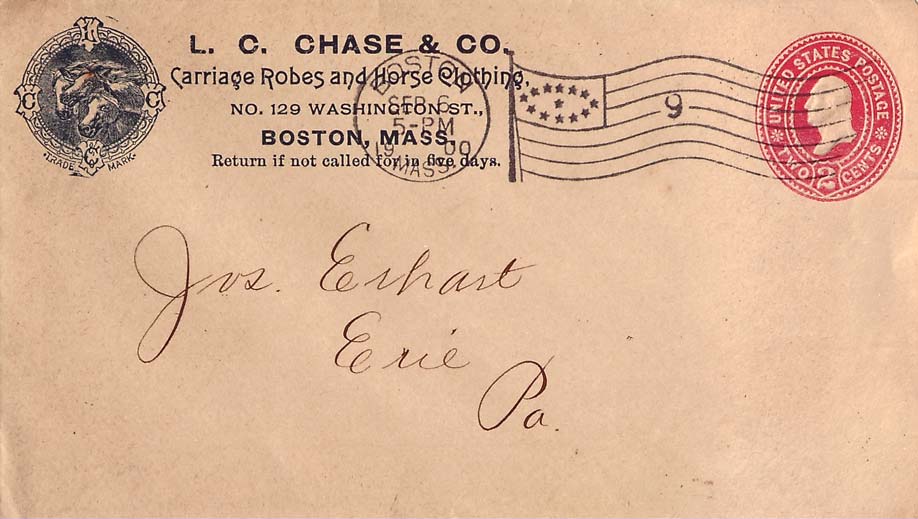 L. C. CHASE & CO.
Carriage Robes and Horse Clothing,
NO. 129 WASHINGTON ST.,
BOSTON, MASS.
Return if not called for in five days.
L C C Co
TRADE MARK.
BOSTON
FEB 6
5-PM
1900
MASS.
9
UNITED STATES POSTAGE
TWO 2 CENTS
Jos. Erhart
Erie
Pa.